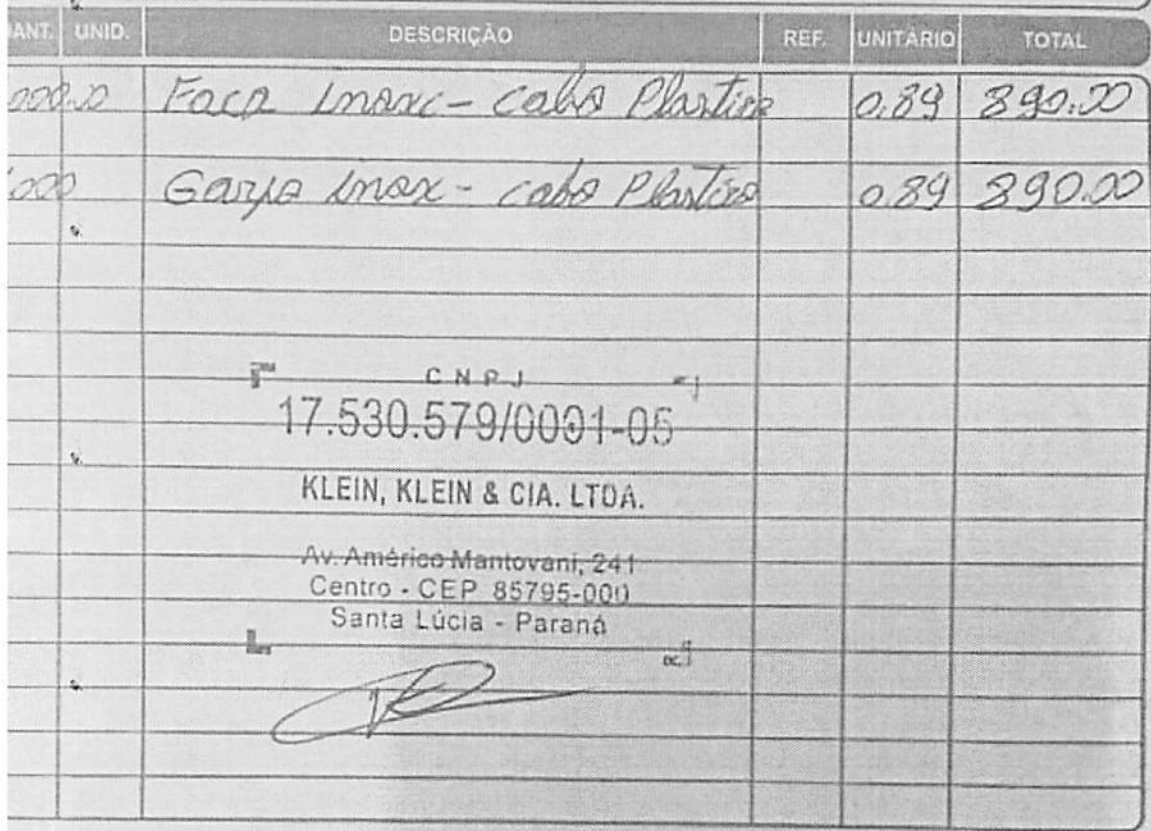 ANT. UNID. DESCRIÇÃO REF. UNITÁRIO TOTAL
Faca Inox - cabo Plastico 0,89 890.00
000 Garfo inox - cabo Plastico 0,89 890.00
CNPJ
17.530.579/0001-05
KLEIN, KLEIN & CIA. LTDA.
Av. Américo Mantovani, 241
Centro - CEP 85795-000
Santa Lúcia - Paraná